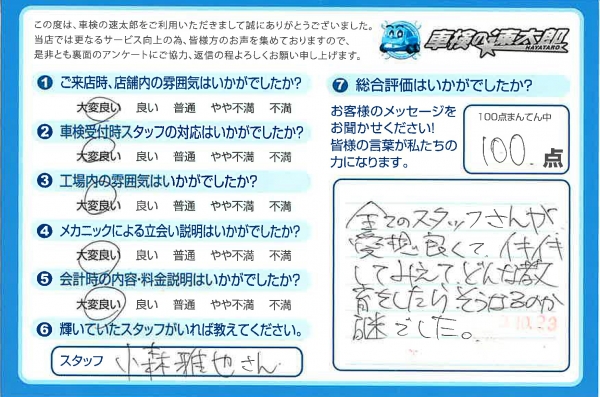 この度は、車検の速太郎をご利用いただきまして誠にありがとうございました。
当店では更なるサービス向上の為、皆様方のお声を集めておりますので、
是非とも裏面のアンケートにご協力、返信の程よろしくお願い申し上げます。
車検の速太郎
HAYATARO
1 ご来店時、店舗内の雰囲気はいかがでしたか?
大変良い 良い 普通 やや不満 不満
2 車検受付時スタッフの対応はいかがでしたか?
大変良い 良い 普通 やや不満 不満
3 工場内の雰囲気はいかがでしたか?
大変良い 良い 普通 やや不満 不満
4 メカニックによる立会い説明はいかがでしたか?
大変良い 良い 普通 やや不満 不満
5 会計時の内容・料金説明はいかがでしたか?
大変良い 良い 普通 やや不満 不満
6 輝いていたスタッフがいれば教えてください。
スタッフ 小森雅也さん
7 総合評価はいかがでしたか?
お客様のメッセージを
お聞かせください!
皆様の言葉が私たちの
力になります。
100点まんてん中
100. 点
全てのスタッフさんが
愛想良くて、イキイキ
してみえて、どんな教
育をしたらそうなるのか
謎でした。
10.23